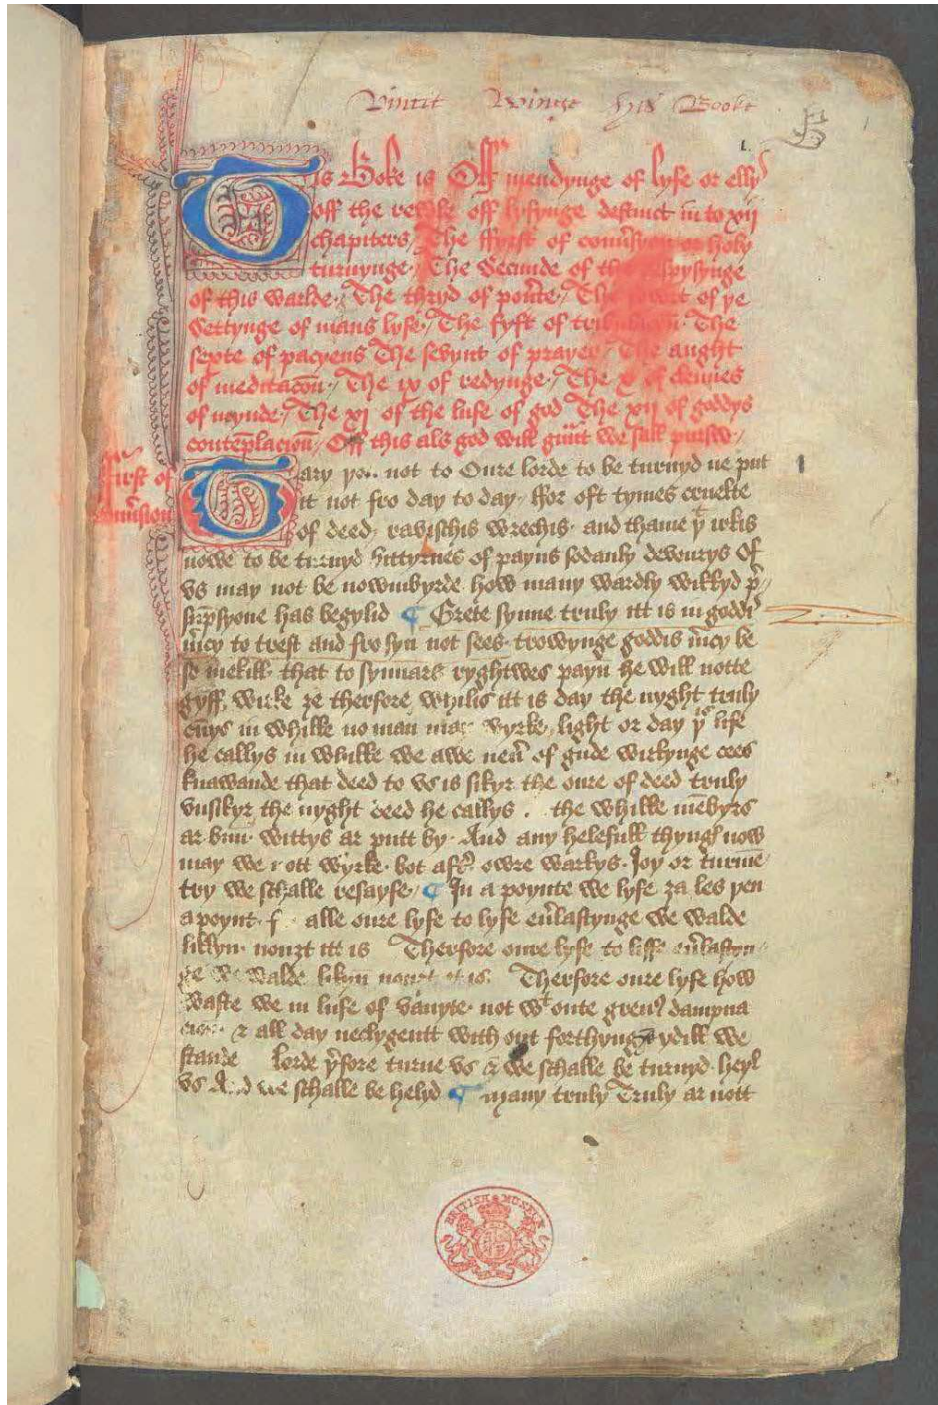 Vincit Winge his Booke
B
1
1.
Tis Boke is Off mendynge of lyfe or ellys
off the rewle off lyfynge destinct in to xij
chapiters / The ffyrst of conũsyon or holy
turnynge / The Secunde of the dispysynge
of this warlde / The thryd of pouẽte / The fowrt of ye
Settynge of mans lyfe / The fyft of tribulacõn The
sexte of pacyens The sevynt of prayer / The aught
of meditacõn / The ix of redynge / The x of clennes
of mynde / The xi of the lufe of god The xij of goddys
contẽplaciõn / Off this als god will gñnt we sall pursew /
Tary you not to Oure lorde to be turnyd ne put
itt not fro day to day ffor oft tymes cruelte
first of
conũsion
of deed ravischis wrechis and thame yt irkis
nowe to be turnyd bittyrnes of payns sodanly devourys Of
vs may not be nowmbyrde how many wardly wikkyd p̃
sũpsyone has begylid ¶ Grete synne truly itt is in goddis
m̃cy to trest and fro syn not sees trowynge goddis m̃cy be
so mekill that to synnars ryghtwes payn he will notte
gyff wirke ze therfore whilis itt is day the nyght truly
cũys in whilke no man may wyrke light or day yis life
he callys in whilke we awe neũ of gude wirkynge cees
knawande that deed to vs is sikyr the oure of deed truly
vnsikyr the nyght deed he callys . the whilke mẽbyrs
ar bun wittys ar putt by And any helefull thyngs now
may we nott wyrke bot aft̃ owre warkys Joy or turmẽ
try we schalle resayfe / ¶ In a poynte we lyfe za les yen
a poynt f alle oure lyfe to lyfe eũlastynge we walde
likkyn nouzt itt is Therfore oure lyfe to liffe eũlastyn
ge we walde likyn nouzt it is Therfore oure lyfe how
waste we in lufe of vanyte not wt oute greuus dampna
cion & all day neclygentt with out forthynge ydill we
stande lorde yfore turne vs & we schalle be turnyd heyl
vs And we schalle be helyd ¶ many truly Truly ar nott
BRITISH MUSEUM